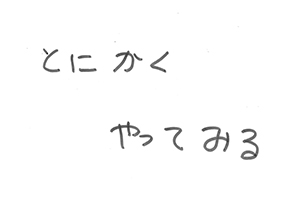 とにかく
やってみる